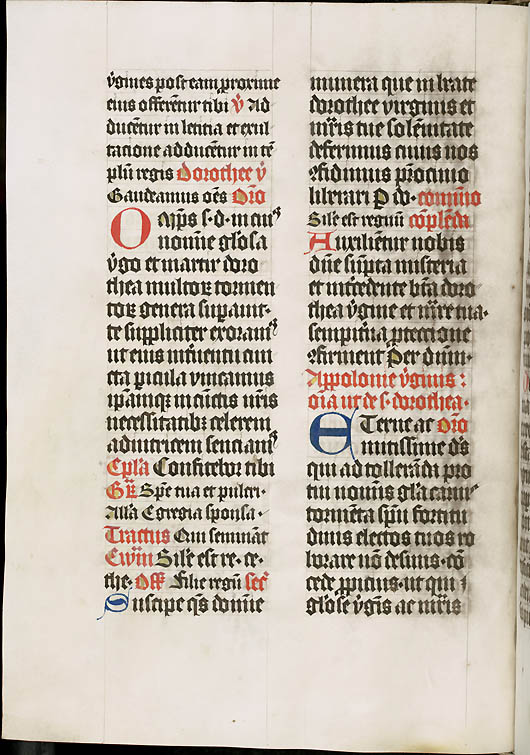 v̾gines post eam proxime
eius offerētur tibi ꝟ Ad
ducētur in leticia et exul
tacione adducētur in tē
plū regis Dorothee ꝟ
Gaudeamus oēs Oro̅
Omps s. d. in cui᷒
nomine glo̅sa
v̾go et martir doro
thea multoꝝ tormen
toꝝ genera supauit.
te suppliciter exoram᷒
ut eius intuentu cun
cta picula vincamus
ipamqꝫ in cunctis nr̄is
necessitatibꝫ celerem
adiutricem senciam᷒
Epl̄a Confitebor tibi
Gr̄ Spē tua et pulcri.
Alla Egregia sponsa.
Tractus Qui seminant
Ewm̄ Sil̄e est re. ce.
the. Off Filie regū secr̄
Suscipe qs̄ domine
munera que in bēate
dorothee virginis et
mr̄is tue solēnitate
deferimus cuius nos
ꝯfidimus pͥcinio
liberari ꝑ do. comūio
Sil̄e est regnū cōplēda
Auxiliētur nobis
dn̄e sūpta misteria
et intcedente bt̄a doro
thea v̾gine et mr̄re tua.
sempitna ptectione
ꝯfirment Per dnm̄.
Appolonie v̾ginis :
oīa ut de s. dorothea.
Eterne ac Oro̅
mitissime d̄s
qui ad tollerādā pro
tui nominis gl̄a carnis
tormēta spū fortitu
dinis electos tuos ro
borare nō desinis. cō
cede ppicius. ut qui ī
glo̅se v̾ginis ac mr̄is